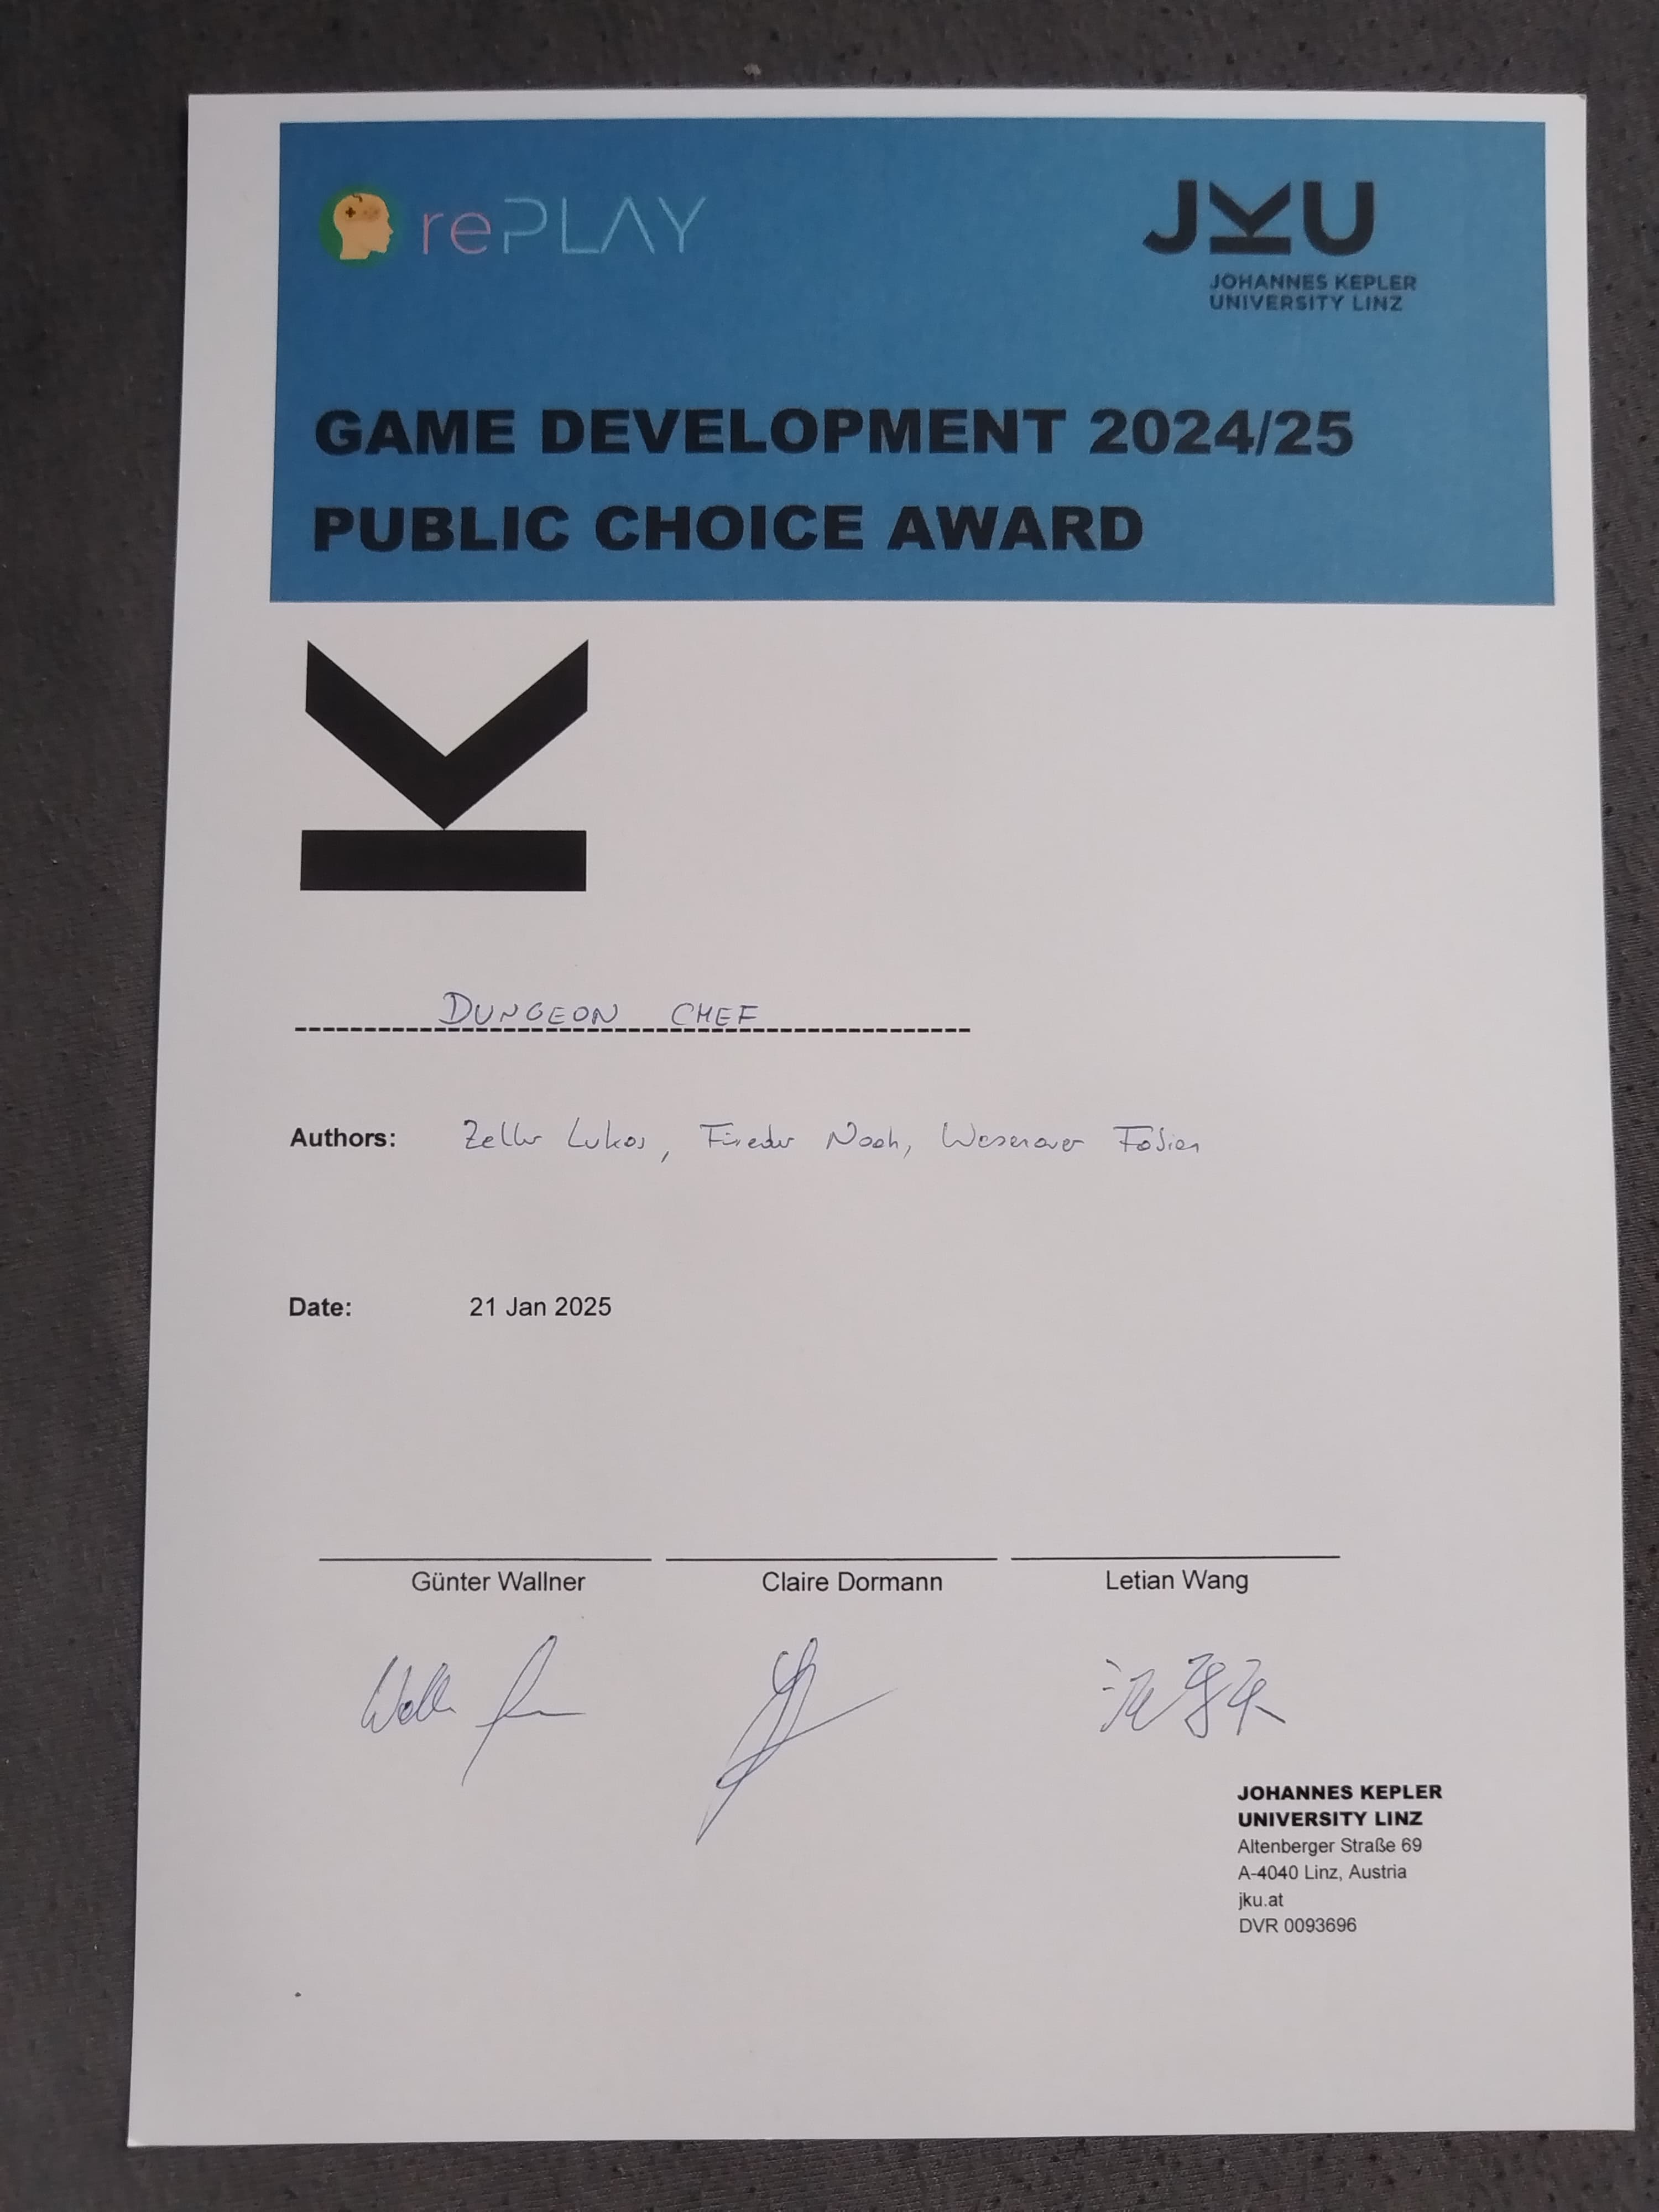 rePLAY
JKU
JOHANNES KEPLER
UNIVERSITY LINZ
GAME DEVELOPMENT 2024/25
PUBLIC CHOICE AWARD
DUNGEON CHEF
Authors: Zeller Lukas, Noah, Fabian
Date: 21 Jan 2025
Günter Wallner Claire Dormann Letian Wang
JOHANNES KEPLER
UNIVERSITY LINZ
Altenberger Straße 69
A-4040 Linz, Austria
jku.at
DVR 0093696